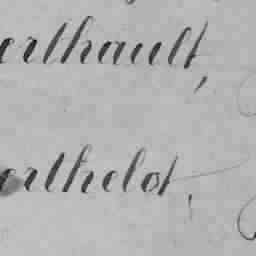 erthault,
erthelot,